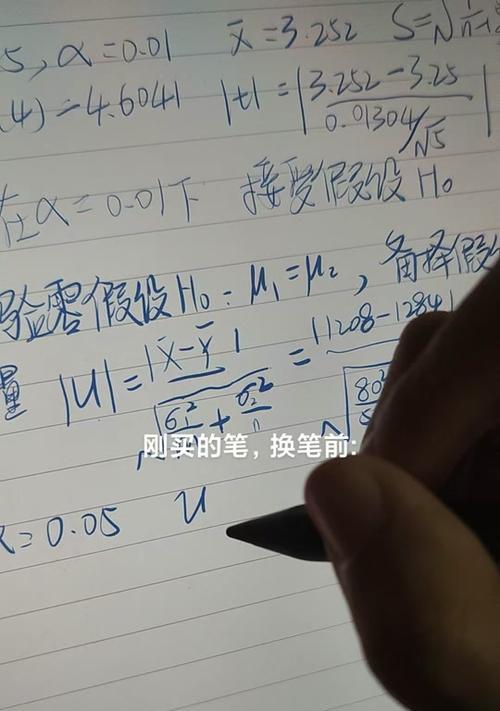 5, α=0.01 x̄=3.252 S=√
4)=4.6041 |t|=|3.252-3.25 / 0.01304/√5|
在α=0.01下 接受假设H₀
验零假设H₀: μ₁=μ₂, 备择假
量 |U|=|X̄-Ȳ| / √σ₁²/ + σ₂²/n = |1208-1284| / √80²/
刚买的笔，换笔前:
α=0.05 u